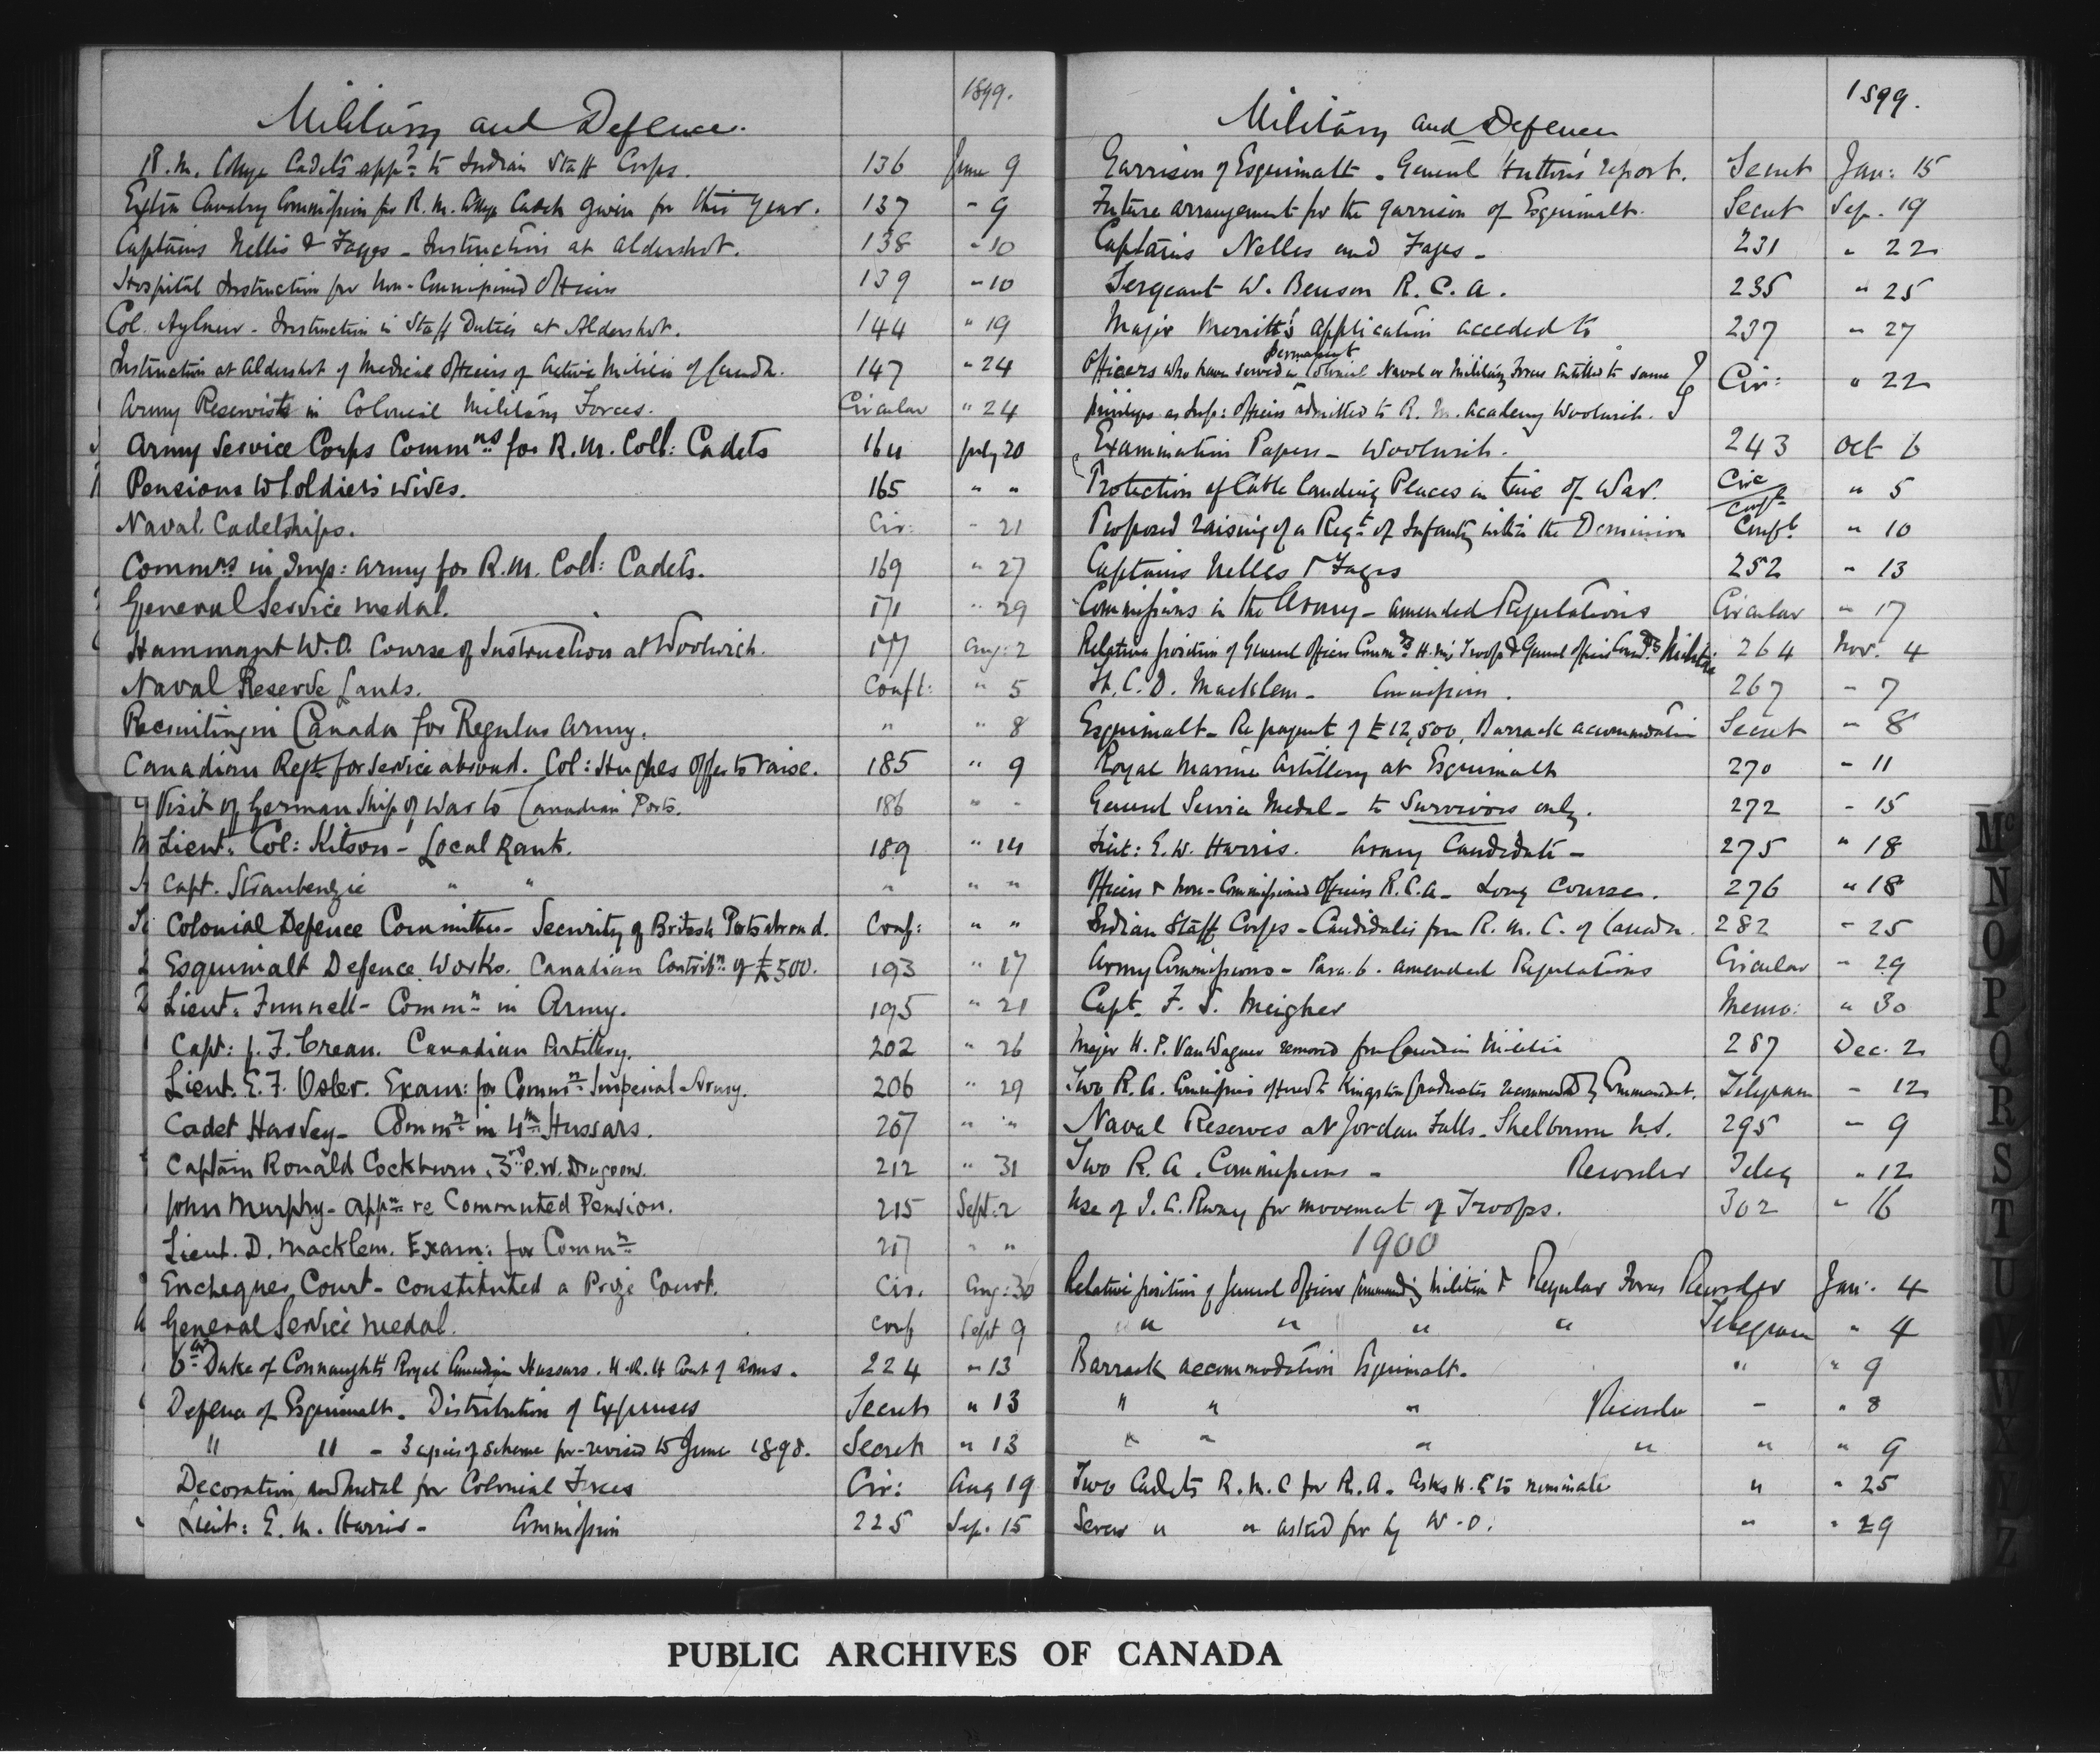 1899.
Military and Defence.
R. M. College Cadets app.d to Indian Staff Corps. 136 June 9
Extra Cavalry Commission for R. M. College Cadets given for this year. 137 " 9
Captains Nellis & Fages - Instruction at Aldershot. 138 " 10
Hospital Instruction for Non-Commissioned Officers 139 " 10
Col. Aylmer - Instruction in Staff Duties at Aldershot. 144 " 19
Instruction at Aldershot of Medical Officers of Active Militia of Canada. 147 " 24
Army Reservists in Colonial Military Forces. Circular " 24
Army Service Corps Commns for R. M. Coll: Cadets 164 July 20
Pensions to Soldiers' Wives. 165 " "
Naval Cadetships. Cir: " 21
Commns in Imp: Army for R. M. Coll: Cadets. 169 " 27
General Service Medal. 171 " 29
Hammant W. O. Course of Instruction at Woolwich. 177 Aug: 2
Naval Reserve Lands. Conft: " 5
Recruiting in Canada for Regular Army. " " 8
Canadian Regt for Service abroad. Col: Hughes offer to raise. 185 " 9
Visit of German Ship of War to Canadian Ports. 186 " "
Lieut. Col: Kitson - Local Rank. 189 " 14
Capt. Straubenzie " " " " "
Colonial Defence Committee - Security of British Ports abroad. Conf: " "
Esquimalt Defence Works. Canadian Contribn of £500. 193 " 17
Lieut. Funnell - Commn in Army. 195 " 21
Capt: J. F. Crean. Canadian Artillery. 202 " 26
Lieut. E. F. Osler. Exam: for Commn Imperial Army. 206 " 29
Cadet Harvey - Commn in 4th Hussars. 207 " "
Captain Ronald Cockburn. 3rd P. W. Dragoons. 212 " 31
John Murphy - appn re Commuted Pension. 215 Sept. 2
Lieut. D. Macklem. Exam: for Commn 217 " "
Exchequer Court - constituted a Prize Court. Cir. Aug: 30
General Service Medal. Conf Sept 9
6th Duke of Connaught's Royal Canadian Hussars. H.R.H Coat of Arms. 224 " 13
Defence of Esquimalt. Distribution of Expenses Secret " 13
" " - 3 copies of scheme for - revised to June 1898. Secret " 13
Decoration and Medal for Colonial Forces Cir: Aug 19
Lieut: E. M. Harris - Commission 225 Sep. 15
1899.
Military and Defence
Garrison of Esquimalt - General Hutton's report. Secret Jan: 15
Future arrangement for the garrison of Esquimalt. Secret Sep. 19
Captains Nelles and Fages - 231 " 22
Sergeant W. Benson R. C. A. 235 " 25
Major Merritt's application acceded to 237 " 27
permanent
Officers who have served in Colonial Naval or Military Forces entitled to same
privileges as Imp: Officers admitted to R. M. Academy Woolwich. Cir: " 22
Examination Papers - Woolwich. 243 Oct 6
Protection of Cable Landing Places in time of War. Circ Conf. " 5
Proposed raising of a Regt of Infantry within the Dominion Confl. " 10
Captains Nelles & Fages 252 " 13
Commissions in the Army - amended Regulations Circular " 17
Relative position of General Officer Commdg H. M's Troops & General Officer Commdg Militia 264 Nov. 4
C. D. Macklem - Commission. 267 " 7
Esquimalt - Re payment of £12,500, Barrack accommodation Secret " 8
Royal Marine Artillery at Esquimalt 270 " 11
General Service Medal - to survivors only. 272 " 15
Lieut: E. W. Harris. Army Candidate - 275 " 18
Officers & Non-Commissioned Officers R. C. A - Long Course. 276 " 18
Indian Staff Corps - Candidates from R. M. C. of Canada. 282 " 25
Army Commissions - Para. 6. amended Regulations Circular " 29
Capt. F. S. Meigher Memo: " 30
Major H. P. Van Wagner removed from Canadian Militia 287 Dec. 2
Two R. A. Commissions offered to Kingston graduates recommended by Commandant. Telegram " 12
Naval Reserves at Jordan Falls - Shelbourne N.S. 295 " 9
Two R. A. Commissions - Recorder Teleg " 12
Use of I. C. Rway for movement of Troops. 302 " 16
1900
Relative position of General Officer Commanding Militia & Regular Forces Recorder Jan: 4
" " " " Telegram " 4
Barrack accommodation Esquimalt. " " 9
" " " Recorder - " 8
" " " " " " 9
Two Cadets R. M. C for R. A. asks H. E to nominate " " 25
Seven " " asked for by W. O. " " 29
Mc
N
O
P
Q
R
S
T
U
W
X
Z
PUBLIC ARCHIVES OF CANADA